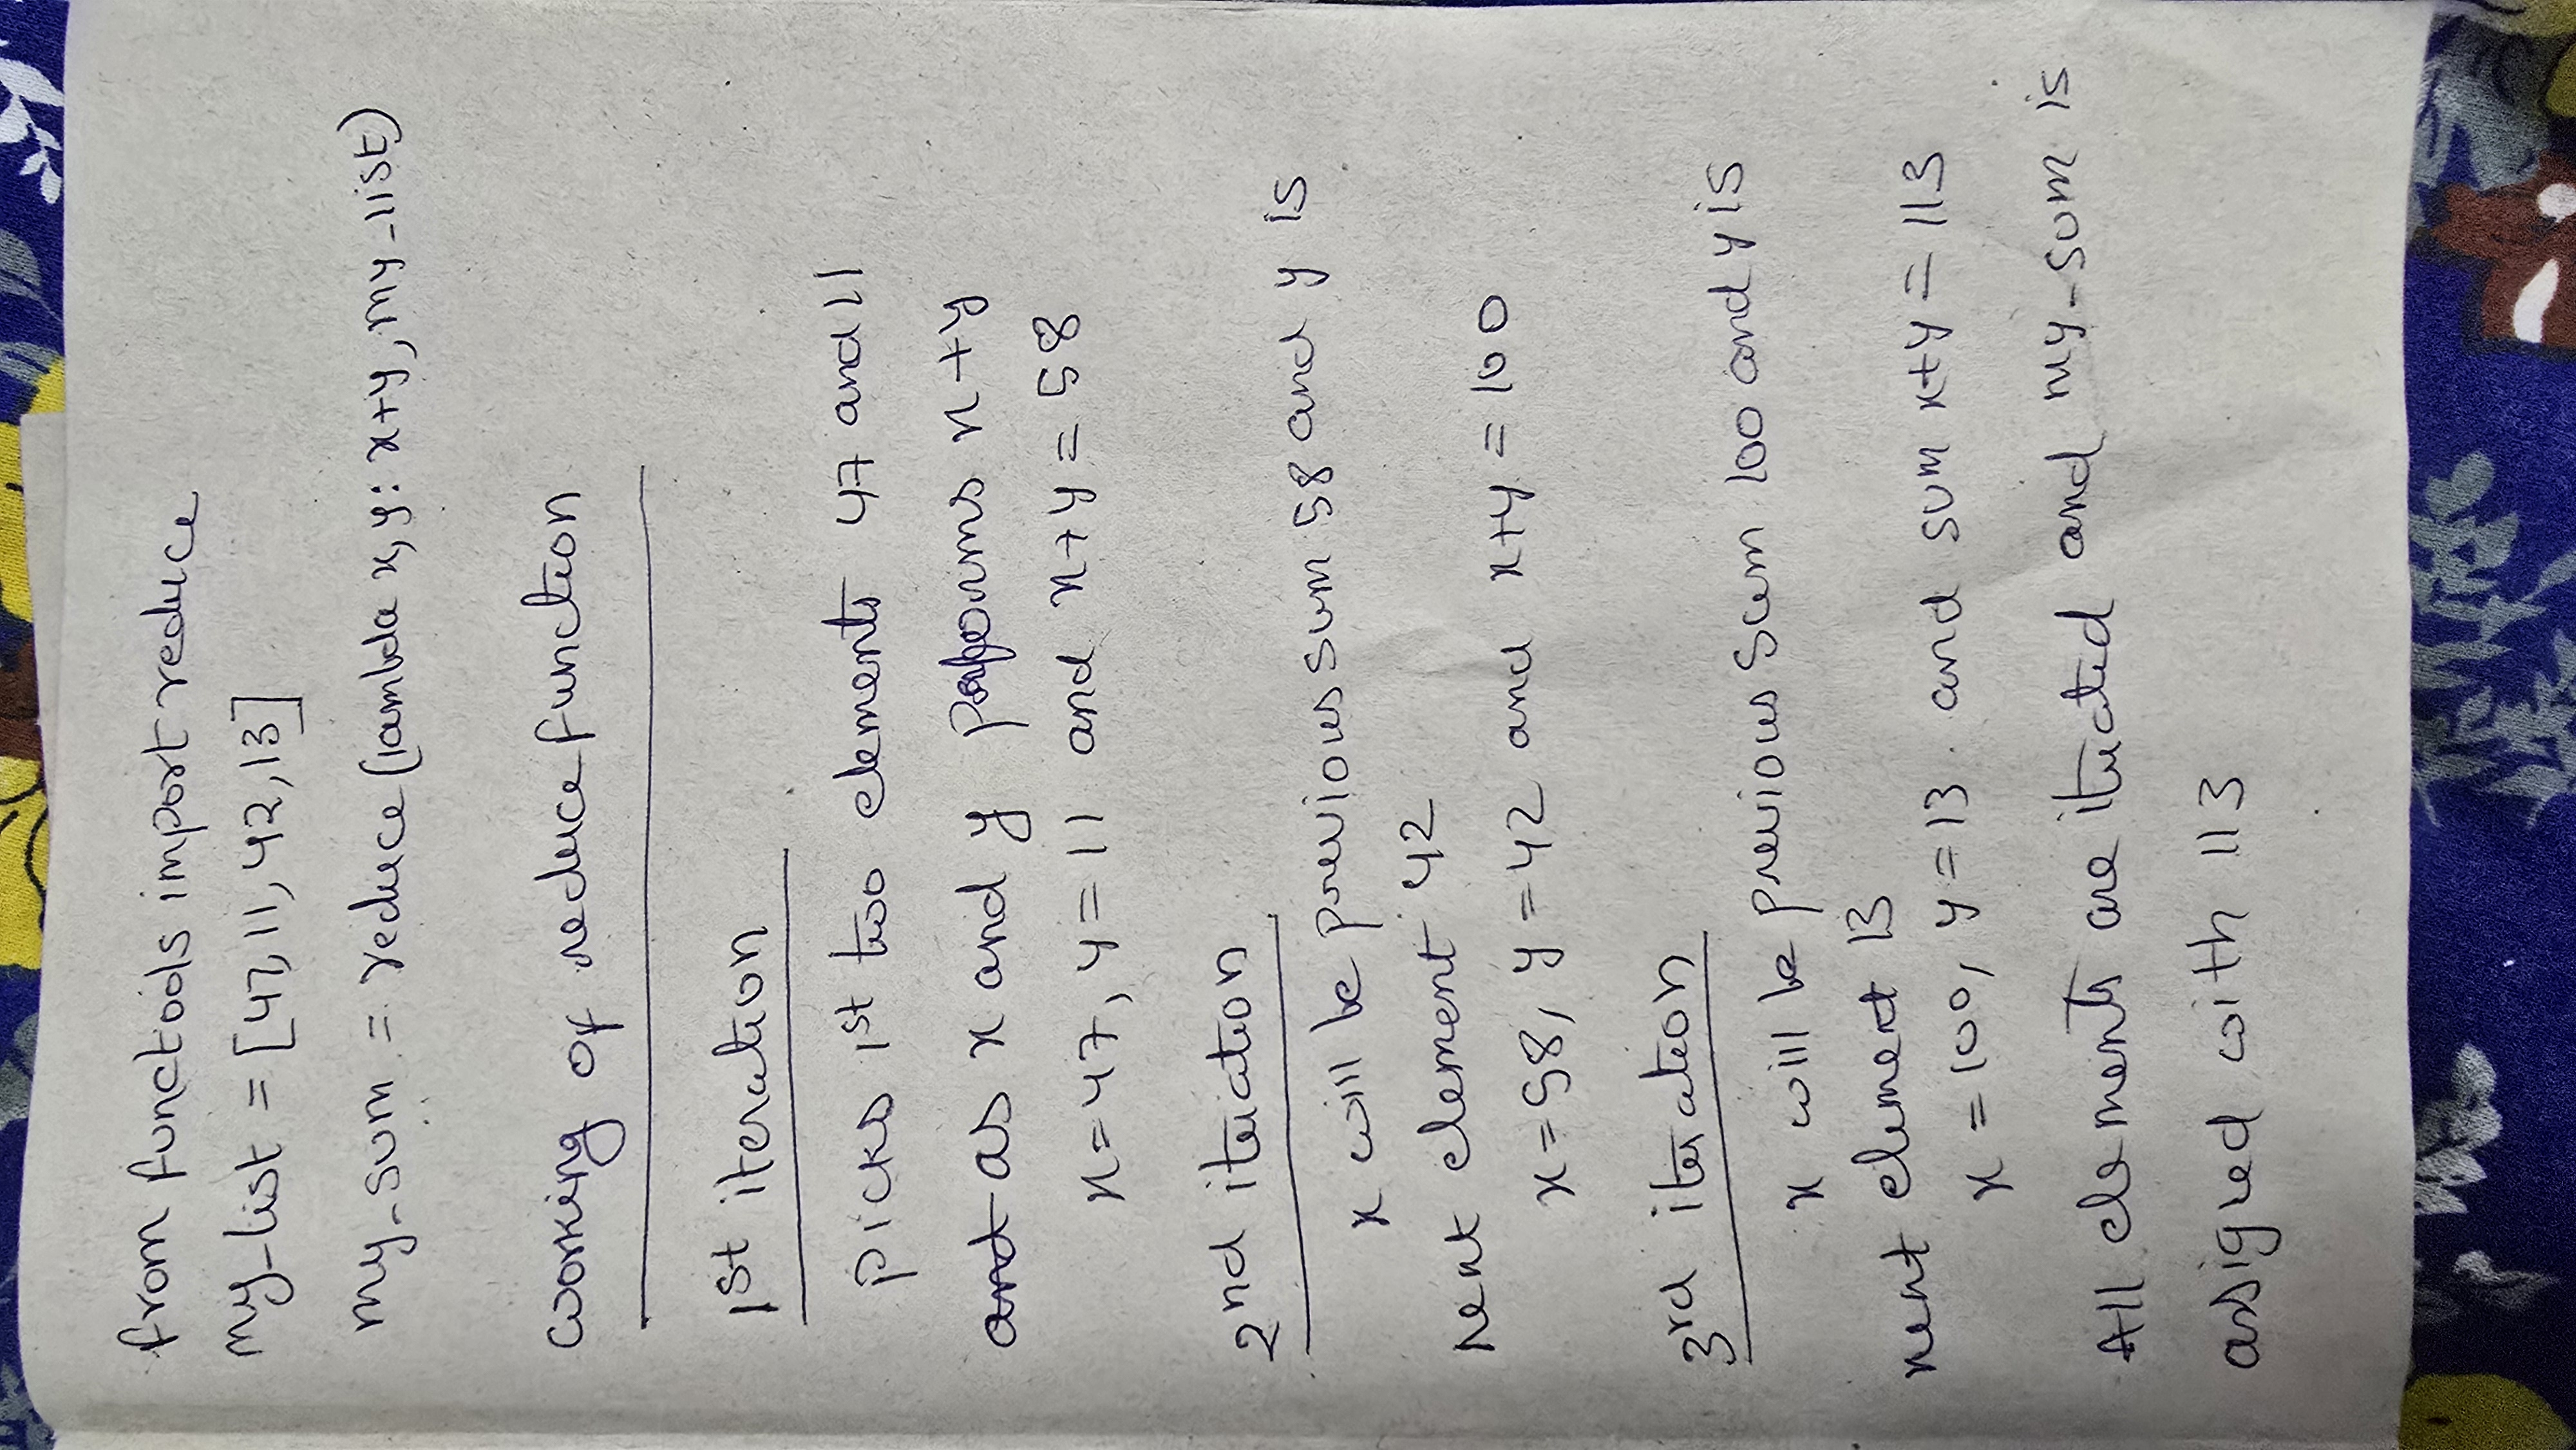 from functools import reduce
my_list = [47, 11, 42, 13]
my_sum = reduce (lambda x, y: x+y, my_list)
working of reduce function
1st iteration
picks 1st two elements 47 and 11
and as x and y performs x+y
x=47, y=11 and x+y=58
2nd iteration
x will be previous sum 58 and y is
next element 42
x=58, y=42 and x+y=100
3rd iteration
x will be previous sum 100 and y is
next element 13
x=100, y=13. and sum x+y=113
All elements are iterated and my_sum is
assigned with 113